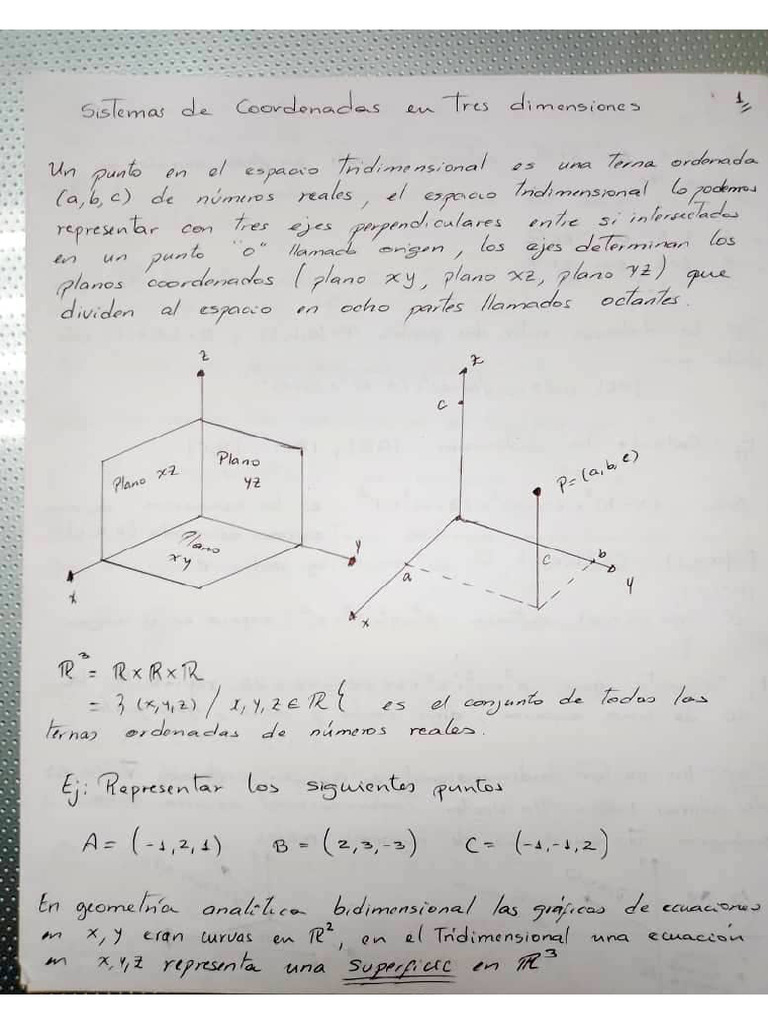 Sistemas de Coordenadas en Tres dimensiones
1
Un punto en el espacio Tridimensional es una Terna ordenada
(a,b,c) de números reales, el espacio Tridimensional lo podemos
representar con tres ejes perpendiculares entre si intersectados
en un punto "o" llamado origen, los ejes determinan los
planos coordenados (plano xy, plano xz, plano yz) que
dividen al espacio en ocho partes llamados octantes.
z
Plano xz
Plano
yz
Plano
xy
x
y
z
c
P=(a,b,c)
a
c
b
y
x
ℝ³ = ℝ×ℝ×ℝ
= } (x,y,z) / x,y,z ∈ ℝ { es el conjunto de todas las
ternas ordenadas de números reales.
Ej: Representar los siguientes puntos
A = (-1,2,1) B = (2,3,-3) C = (-1,-1,2)
En geometría analítica bidimensional las gráficas de ecuaciones
en x,y eran curvas en ℝ², en el Tridimensional una ecuación
en x,y,z representa una superficie en ℝ³